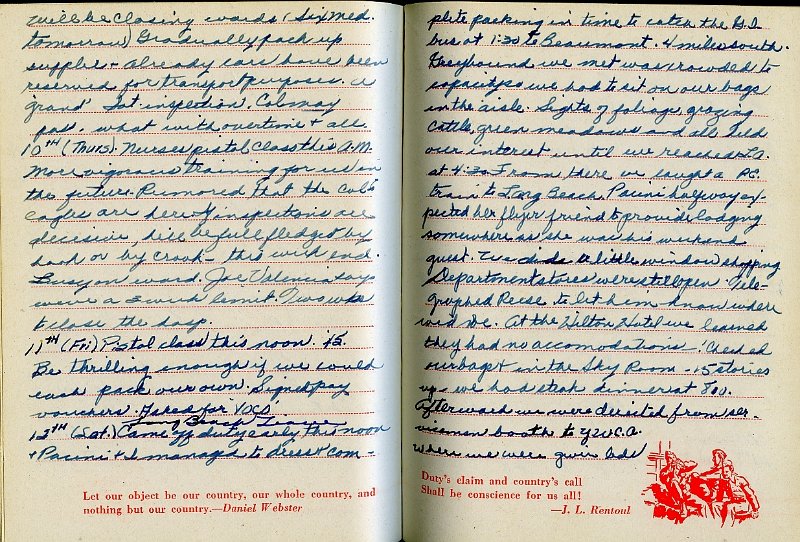 will be closing words (six med.
tomorrow) Gradually pack up
supplies - already cars have been
reserved for transport purposes. A
grand Sat inspection. Col may
pass. what with overtime + all
10TH (Thurs). Nurses pistol class this A.M.
More vigorous training for us in
the future. Rumored that the Col's
eagles are here + if inspections are
decisive, he'll be full fledged by
hook or by crook - this week end.
Busy on ward. Joe Valencia says
we're a 3 week limit. Two wks
to close the hosp.
11TH (Fri) Pistol class this noon. 45
Be thrilling enough if we could
each pack our own. Signed pay
vouchers. Asked for VOCO
Long Beach Leave
12TH (Sat.) Came off duty early this noon
+ Pacini + I managed to dress + com-
Let our object be our country, our whole country, and
nothing but our country.—Daniel Webster
plete packing in time to catch the G.I.
bus at 1:30 to Beaumont. 4 miles south.
Greyhound we met was crowded to
capacity so we had to sit on our bags
in the aisle. Sights of foliage, grazing
cattle, green meadows and all held
our interest until we reached L.A.
at 4:30. From there we caught a P.E.
train to Long Beach. Pacini halfway ex-
pected her flyer friend to provide lodging
somewhere as she was his weekend
guest. We did a little window shopping
Department stores were still open. Tele-
graphed Reese to let him know where
we'd be. At the Hilton Hotel we learned
they had no accomodations. Checked
our bags + in the Sky Room - 15 stories
up - we had steak dinner at 8:00.
Afterward we were directed from ser-
viceman booth to Y.W.C.A.
where we were given beds
Duty's claim and country's call
Shall be conscience for us all!
—J. L. Rentoul